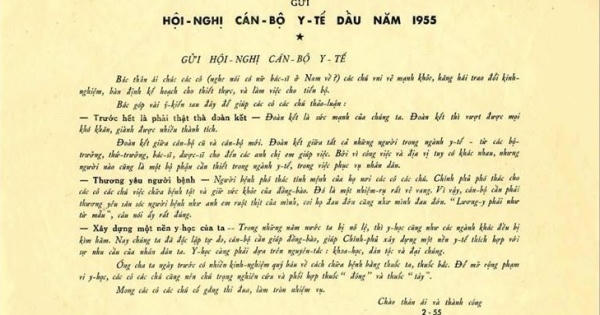 GỬI
HỘI-NGHỊ CÁN-BỘ Y-TẾ DẦU NĂM 1955
GỬI HỘI-NGHỊ CÁN-BỘ Y-TẾ
Bác thân ái chúc các cô (nghe nói có nữ bác-sĩ ở Nam về?) các chú vui vẻ mạnh khỏe, hăng hái trao đổi kinh-
nghiệm, bàn định kế hoạch cho thiết thực, và làm việc cho tiến bộ.
Bác góp vài ý-kiến sau đây để giúp các cô các chú thảo-luận :
— Trước hết là phải thật thà đoàn kết — Đoàn kết là sức mạnh của chúng ta. Đoàn kết thì vượt được mọi
khó khăn, giành được nhiều thành tích.
Đoàn kết giữa cán-bộ cũ và cán-bộ mới. Đoàn kết giữa tất cả những người trong ngành y-tế - từ các bộ-
trưởng, thứ-trưởng, bác-sĩ, dược-sĩ cho đến các anh chị em giúp việc. Bởi vì công việc và địa vị tuy có khác nhau, nhưng
người nào cũng là một bộ phận cần thiết trong ngành y-tế, trong việc phục vụ nhân dân.
— Thương yêu người bệnh — Người bệnh phó thác tính mệnh của họ nơi các cô các chú. Chính phủ phó thác cho
các cô các chú việc chữa bệnh tật và giữ sức khỏe của đồng-bào. Đó là một nhiệm-vụ rất vẻ vang. Vì vậy, cán-bộ cần phải
thương yêu săn sóc người bệnh như anh em ruột thịt của mình, coi họ đau đớn cũng như mình đau đớn. “Lương-y phải như
từ mẫu”, câu nói ấy rất đúng.
— Xây dựng một nền y-học của ta -- Trong những năm nước ta bị nô lệ, thì y-học cũng như các ngành khác đều bị
kìm hãm. Nay chúng ta đã độc lập tự do, cán-bộ cần giúp đồng-bào, giúp Chính-phủ xây dựng một nền y-tế thích hợp với
sự nhu cầu của nhân dân ta. Y-học càng phải dựa trên nguyên-tắc : khoa-học, dân tộc và đại chúng.
Ông cha ta ngày trước có nhiều kinh-nghiệm quý báu về cách chữa bệnh bằng thuốc ta, thuốc bắc. Để mở rộng phạm
vi y-học, các cô các chú cũng nên chú trọng nghiên cứu và phối hợp thuốc “đông” và thuốc “tây”.
Mong các cô các chú cố gắng thi đua, làm tròn nhiệm vụ.
Chào thân ái và thành công
2 - 55